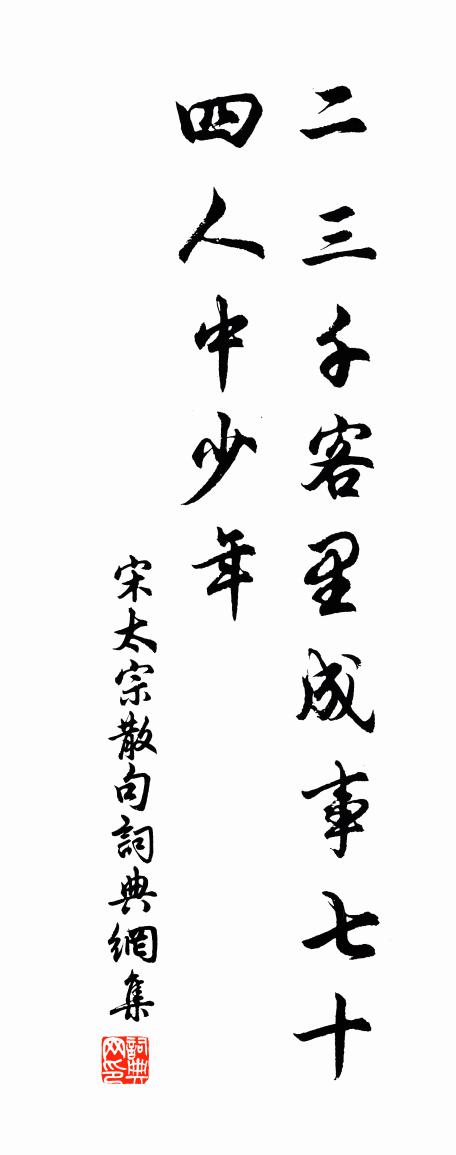 二三千客里成事七十
四人中少年
宋太宗散句詞典網集
詞典网印